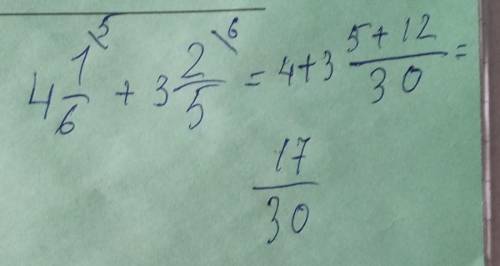 4 1/6 \5 + 3 2/5 \6 = 4+3 5+12/30 =
17/30